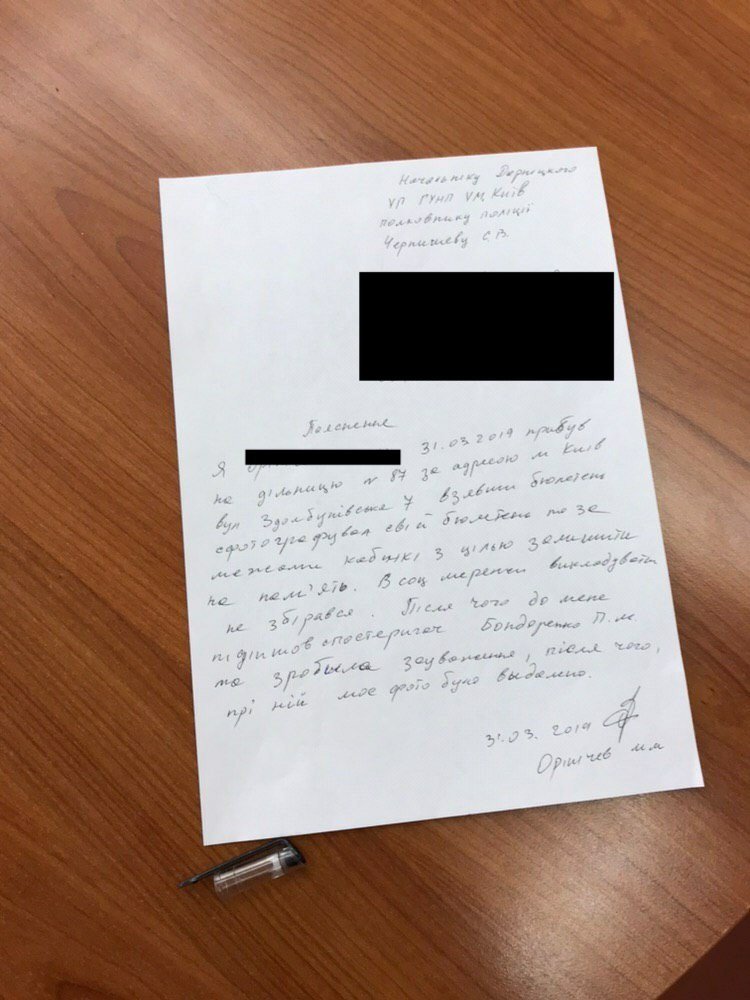 Начальніку Дарницкого
УП ГУНП У М.Київ
полковнику поліції
Черничеву С.В.
Пояснення
Я 31.03.2019 прибув
на дільницю № 87 за адресою м Київ
вул Здолбунівська 7 взявши бюлетень
сфотографував свій бюлетень та за
межами кабінкі з цілью залишити
на пам'ять. В соц мережи викладувати
не збірався. Після чого до мене
підійшов спостерігач Бондаренко П.М.
та зробыла зауваження, після чого,
прі ній моє фото було выдалено.
31.03.2019
Орішчев М М